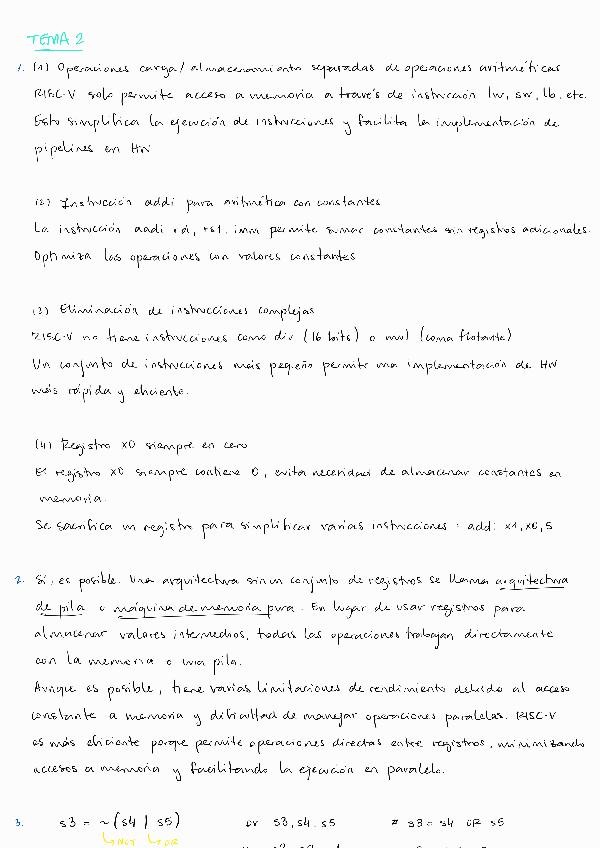 TEMA 2
1. (1) Operaciones carga/almacenamiento separadas de operaciones aritméticas
RISC-V solo permite acceso a memoria a través de instrucción lw, sw, lb, etc.
Esto simplifica la ejecución de instrucciones y facilita la implementación de
pipelines en HW
(2) Instrucción addi para aritmética con constantes
La instrucción addi rd, rs1, imm permite sumar constantes sin registros adicionales.
Optimiza las operaciones con valores constantes
(3) Eliminación de instrucciones complejas
RISC-V no tiene instrucciones como div (16 bits) o mul (coma flotante)
Un conjunto de instrucciones más pequeño permite una implementación de HW
más rápida y eficiente.
(4) Registro x0 siempre en cero
El registro x0 siempre contiene 0, evita necesidad de almacenar constantes en
memoria.
Se sacrifica un registro para simplificar varias instrucciones: addi x1, x0, 5
2. Sí, es posible. Una arquitectura sin un conjunto de registros se llama arquitectura
de pila o máquina de memoria pura. En lugar de usar registros para
almacenar valores intermedios, todas las operaciones trabajan directamente
con la memoria o una pila.
Aunque es posible, tiene varias limitaciones de rendimiento debido al acceso
constante a memoria y dificultad de manejar operaciones paralelas. RISC-V
es más eficiente porque permite operaciones directas entre registros, minimizando
accesos a memoria y facilitando la ejecución en paralelo.
3. s3 = ~(s4 | s5) or s3, s4, s5 # s3 = s4 OR s5
NOT OR